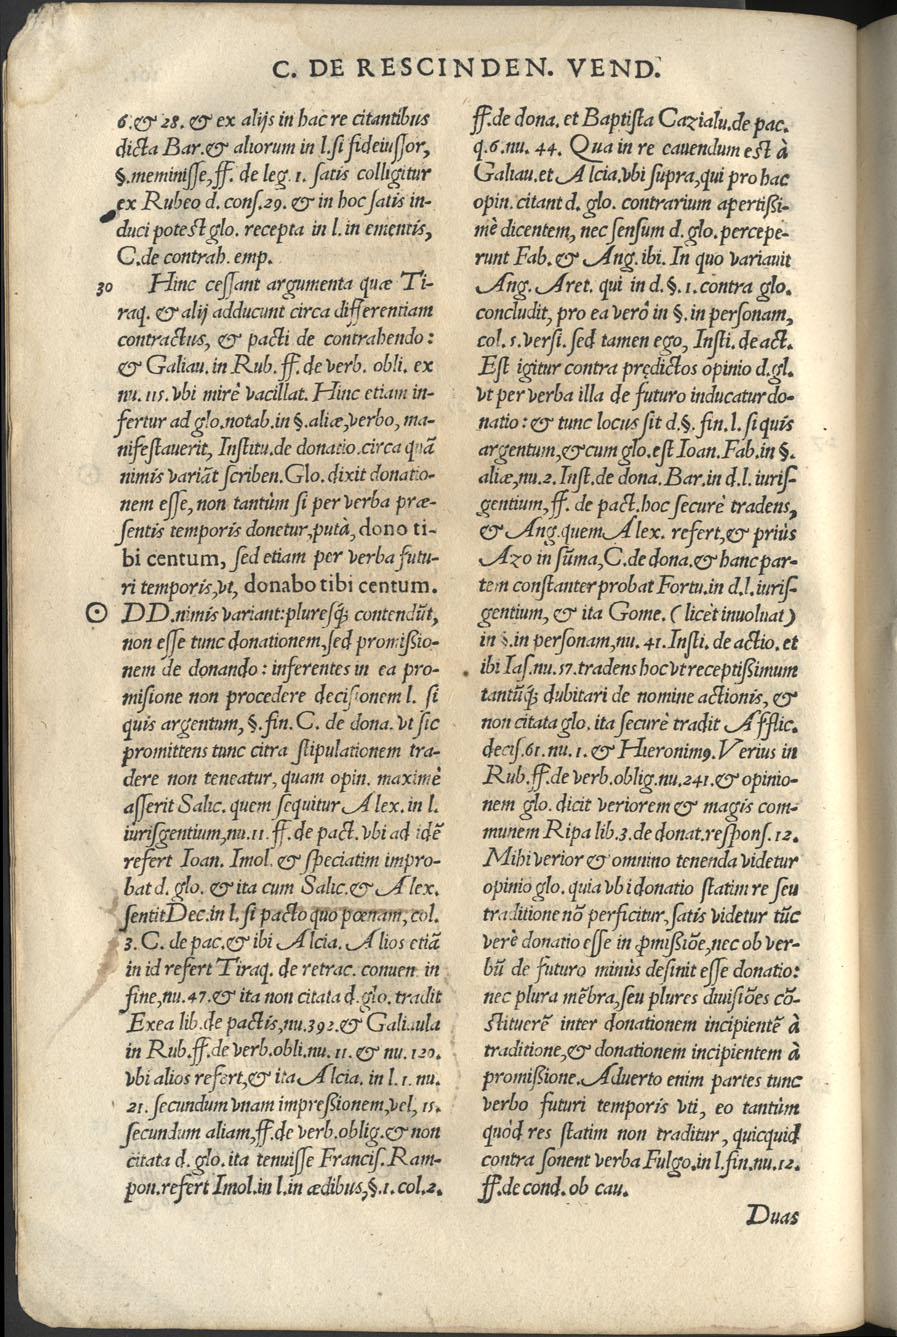 C. DE RESCINDEN. VEND.
6. & 28. & ex alijs in hac re citantibus
dicta Bar. & aliorum in l. si fideiuſſor,
§. meminiſſe, ff. de leg. 1. ſatis colligitur
ex Rubeo d. conſ. 29. & in hoc ſatis in-
duci poteſt glo. recepta in l. in ementis,
C. de contrah. emp.
30 Hinc ceſſant argumenta quæ Ti-
raq. & alij adducunt circa differentiam
contractus, & pacti de contrahendo:
& Galiau. in Rub. ff. de verb. obli. ex
nu. 115. vbi mirè vacillat. Hinc etiam in-
fertur ad glo. notab. in §. aliæ, verbo, ma-
nifeſtauerit, Inſtitu. de donatio. circa quā
nimis variāt ſcriben. Glo. dixit donatio-
nem eſſe, non tantùm ſi per verba præ-
ſentis temporis donetur, putà, dono ti-
bi centum, ſed etiam per verba futu-
ri temporis, vt, donabo tibi centum.
DD. nimis variant: pluresq́; contendūt,
non eſſe tunc donationem, ſed promißio-
nem de donando: inferentes in ea pro-
miſione non procedere deciſionem l. ſi
quis argentum, §. fin. C. de dona. vt ſic
promittens tunc citra ſtipulationem tra-
dere non teneatur, quam opin. maximè
aſſerit Salic. quem ſequitur Alex. in l.
iuriſgentium, nu. 11. ff. de pact. vbi ad idē
refert Ioan. Imol. & ſpeciatim impro-
bat d. glo. & ita cum Salic. & Alex.
ſentit Dec. in l. ſi pacto quo pœnam, col.
3. C. de pac. & ibi Alcia. Alios etiā
in id refert Tiraq. de retrac. conuen. in
fine, nu. 47. & ita non citata d. glo. tradit
Exea lib. de pactis, nu. 392. & Galiaula
in Rub. ff. de verb. obli. nu. 11. & nu. 120.
vbi alios refert, & ita Alcia. in l. 1. nu.
21. ſecundum vnam impreßionem, vel, 15.
ſecundum aliam, ff. de verb. oblig. & non
citata d. glo. ita tenuiſſe Franciſ. Ram-
pon. refert Imol. in l. in ædibus, §. 1. col. 2.
ff. de dona. et Baptiſta Cazialu. de pac.
q. 6. nu. 44. Qua in re cauendum eſt à
Galiau. et Alcia, vbi ſupra, qui pro hac
opin. citant d. glo. contrarium apertißi-
mè dicentem, nec ſenſum d. glo. percepe-
runt Fab. & Ang. ibi. In quo variauit
Ang. Aret. qui in d. §. 1. contra glo.
concludit, pro ea verò in §. in perſonam,
col. 5. verſi. ſed tamen ego, Inſti. de act.
Eſt igitur contra prędictos opinio d. gl.
vt per verba illa de futuro inducatur do-
natio: & tunc locus ſit d. §. fin. l. ſi quis
argentum, & cum glo. eſt Ioan. Fab. in §.
aliæ, nu. 2. Inſt. de dona. Bar. in d. l. iuriſ-
gentium, ff. de pact. hoc ſecurè tradens,
& Ang. quem Alex. refert, & priùs
Azo in sūma, C. de dona. & hanc par-
tem conſtanter probat Fortu. in d. l. iuriſ-
gentium, & ita Gome. (licèt inuoluat)
in §. in perſonam, nu. 41. Inſti. de actio. et
ibi Iaſ. nu. 57. tradens hoc vt receptißimum
tantūq́; dubitari de nomine actionis, &
non citata glo. ita ſecurè tradit Afflic.
deciſ. 61. nu. 1. & Hieronimꝰ. Verius in
Rub. ff. de verb. oblig. nu. 241. & opinio-
nem glo. dicit veriorem & magis com-
munem Ripa lib. 3. de donat. reſponſ. 12.
Mihi verior & omnino tenenda videtur
opinio glo. quia vbi donatio ſtatim re ſeu
traditione nō perficitur, ſatis videtur tūc
verè donatio eſſe in ꝓmißiōe, nec ob ver-
bū de futuro minùs deſinit eſſe donatio:
nec plura mēbra, ſeu plures diuiſiōes cō-
ſtituerē inter donationem incipientē à
traditione, & donationem incipientem à
promißione. Aduerto enim partes tunc
verbo futuri temporis vti, eo tantùm
quòd res ſtatim non traditur, quicquid
contra ſonent verba Fulgo. in l. fin. nu. 12.
ff. de cond. ob cau.
Duas